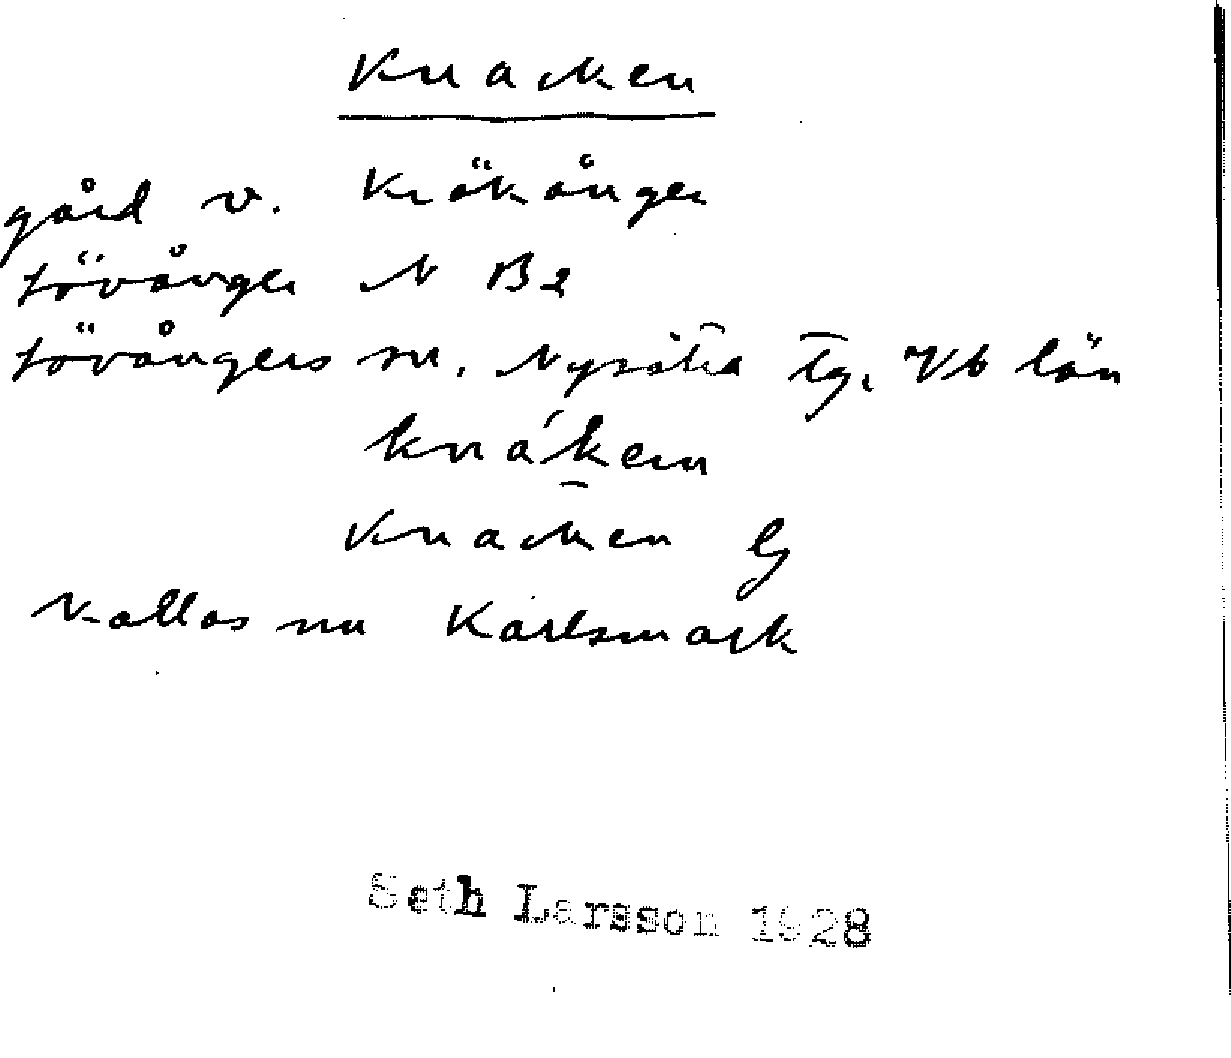 Knacken
gård v. Kräkånger
Lövånger N B2
Lövångers sn. Nysätra tg. Vb län
knák̄en
Knacken G
Kallas nu Karlsmark
Seth Larsson 1928